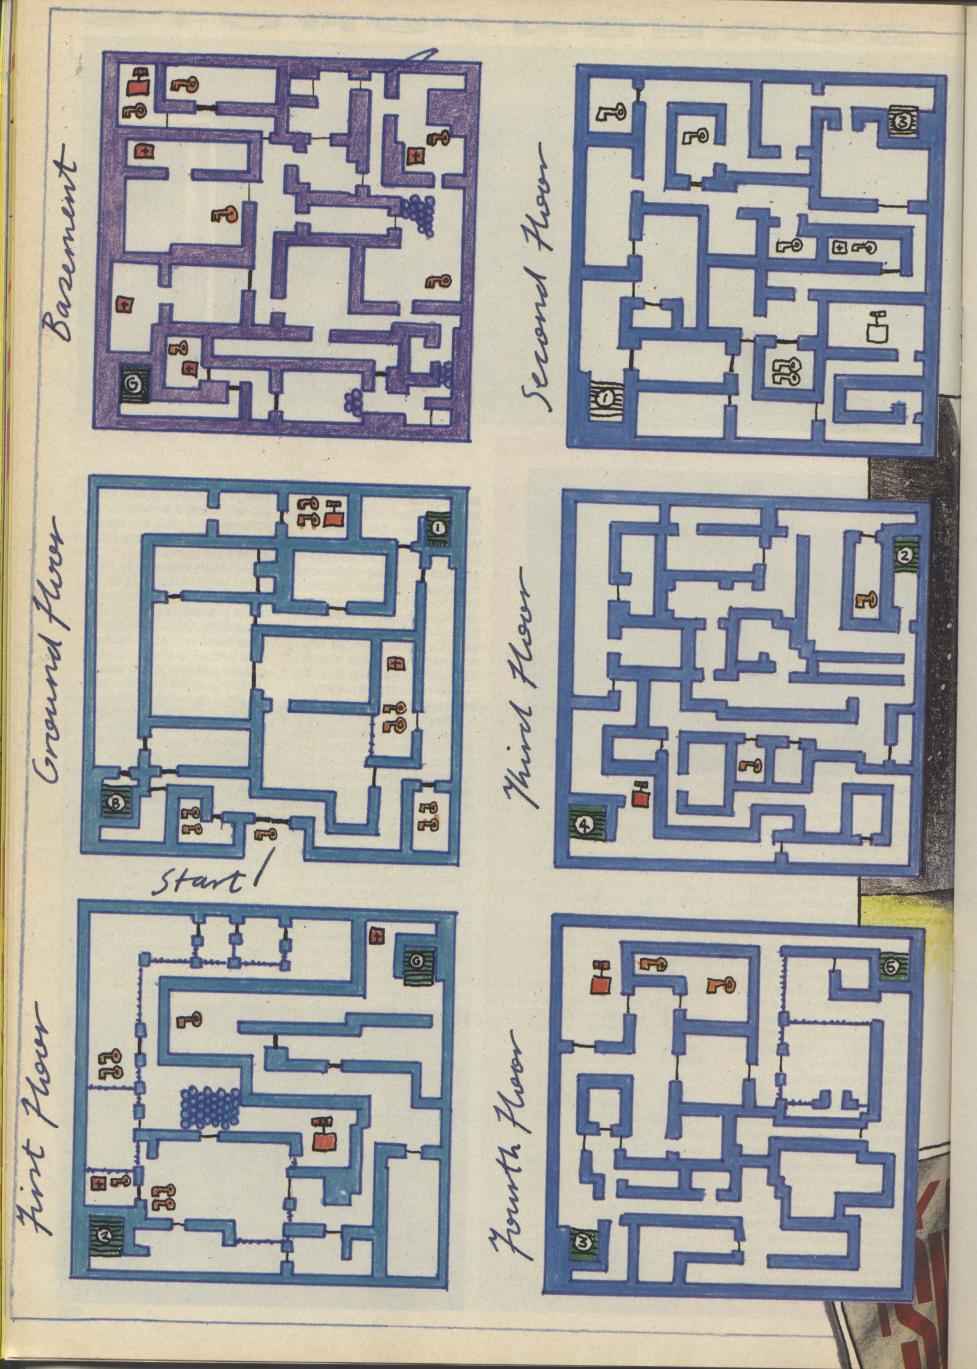 Basement
G
Second Floor
3
1
Ground Floor
1
B
Start
Third Floor
2
4
First Floor
G
2
Fourth Floor
5
3